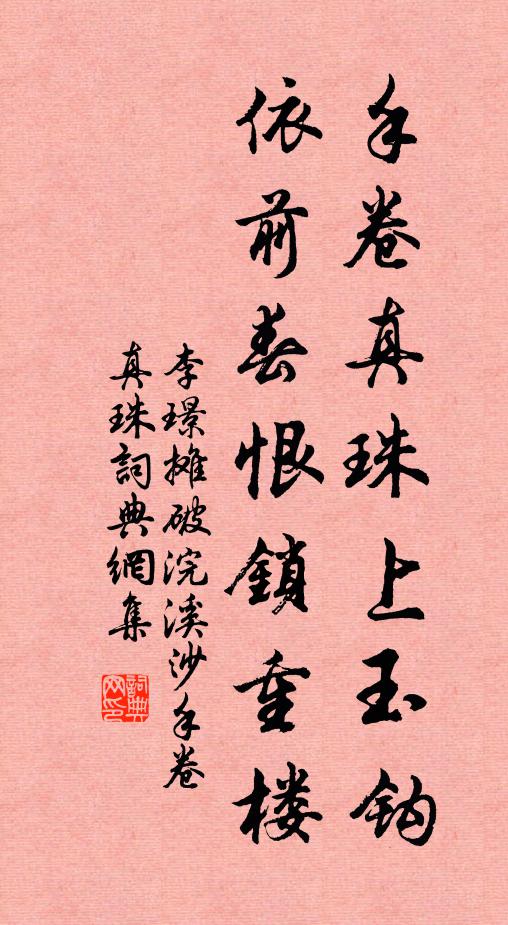 手卷真珠上玉钩
依前春恨鎖重楼
李璟攤破浣溪沙手卷
真珠詞典網集
詞典
网印